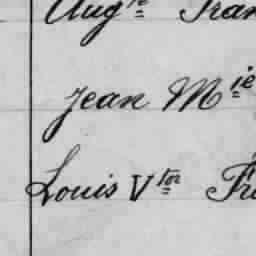 Augte Fran
Jean Mie
Louis Vtor Fr